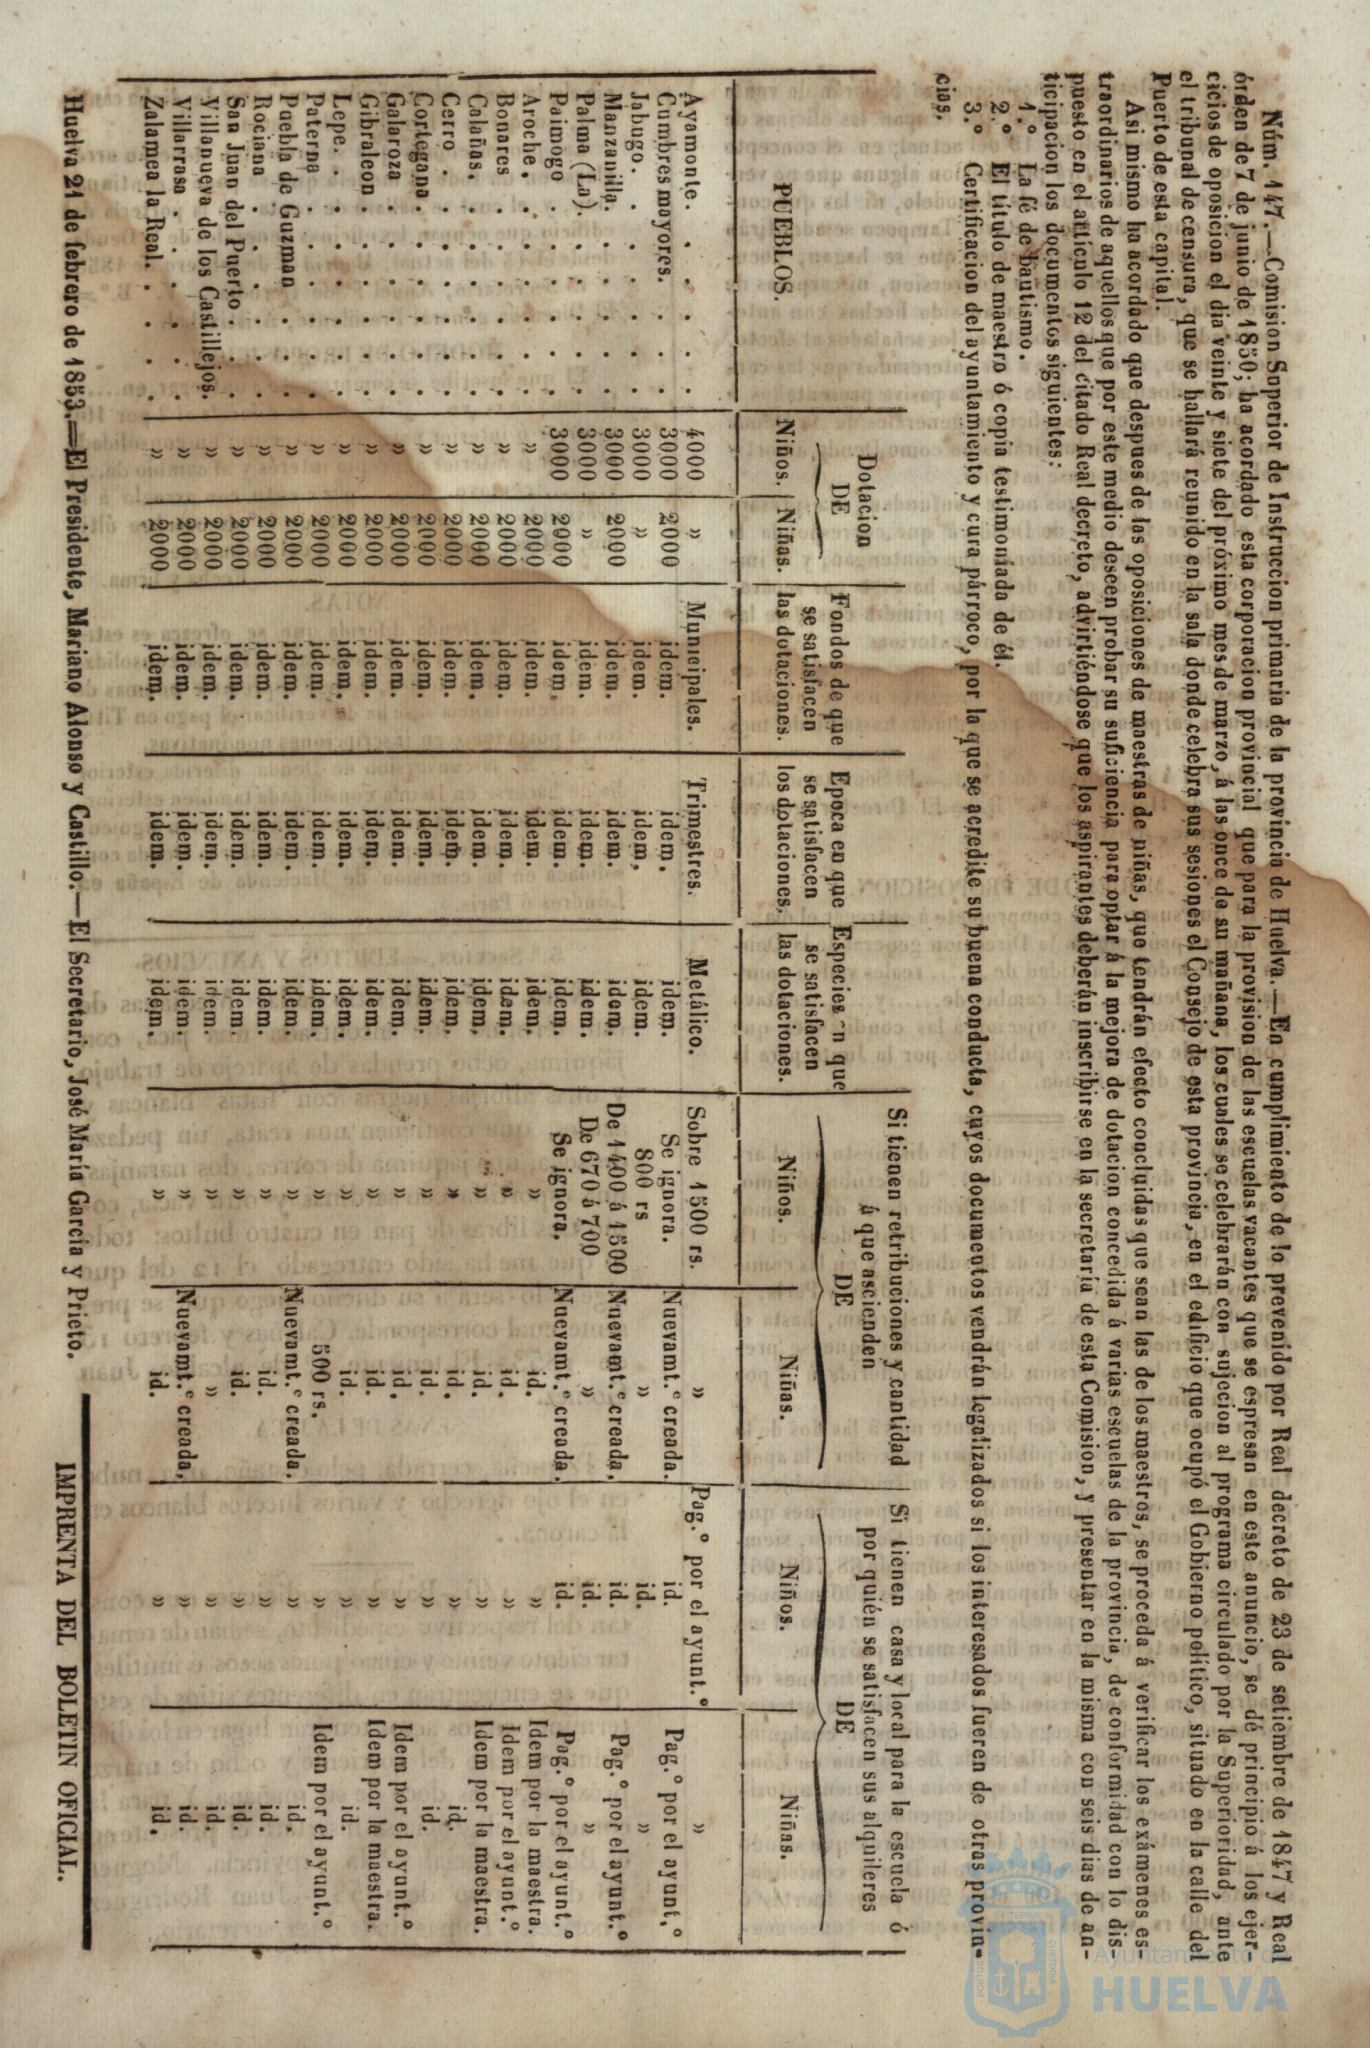 Núm. 147.—Comision Superior de Instruccion primaria de la provincia de Huelva.—En cumplimiento de lo prevenido por Real decreto de 23 de setiembre de 1847 y Real
órden de 7 de junio de 1850; ha acordado esta corporacion provincial que para la provision de las escuelas vacantes que se espresan en este anuncio, se dé principio á los ejer-
cicios de oposicion el dia veinte y siete del próximo mes de marzo, á las once de su mañana, los cuales se celebrarán con sujecion al programa circulado por la Superioridad, ante
el tribunal de censura, que se hallará reunido en la sala donde celebra sus sesiones el Consejo de esta provincia, en el edificio que ocupó el Gobierno político, situado en la calle del
Puerto de esta capital.
Asi mismo ha acordado que despues de las oposiciones de maestras de niñas, que tendrán efecto concluidas que sean las de los maestros, se proceda á verificar los exámenes es-
traordinarios de aquellos que por este medio deseen probar su suficiencia para optar á la mejora de dotacion concedida á varias escuelas de la provincia, de conformidad con lo dis-
puesto en el artículo 12 del citado Real decreto, advirtiéndose que los aspirantes deberán inscribirse en la secretaría de esta Comision, y presentar en la misma con seis dias de an-
ticipacion los documentos siguientes:
1.º La fé de bautismo.
2.º El título de maestro ó copia testimoniada de él.
3.º Certificacion del ayuntamiento y cura párroco, por la que se acredite su buena conducta, cuyos documentos vendrán legalizados si los interesados fueren de otras provin-
cias.
PUEBLOS. Dotacion DE Niños. Niñas. Fondos de que se satisfacen las dotaciones. Epoca en que se satisfacen los dotaciones. Especies en que se satisfacen las dotaciones. Si tienen retribuciones y cantidad á que ascienden DE Niños. Niñas. Si tienen casa y local para la escuela ó por quién se satisfacen sus alquileres DE Niños. Niñas.
Ayamonte. . . . . 4000 » Municipales. Trimestres. Metálico. Sobre 1500 rs. » Pag.º por el ayunt.º »
Cumbres mayores. . . . 3000 2000 idem. idem. idem. Se ignora. Nuevamt.e creada. id. Pag.º por el ayunt.º
Jabugo. . . . . . 3000 » idem. idem, idem. 800 rs » id. »
Manzanilla. . . . . 3000 2000 idem. idem. idem. De 1400 á 1500 Nuevamt.e creada, id. Pag.º por el ayunt.º
Palma (La). . . . . 3000 » idem. idem. idem. De 670 á 700 » id. »
Paimogo . . . . . 3000 2000 idem. idem. idem. Se ignora. Nuevamt.e creada. id. Pag.º por el ayunt.º
Aroche. . . . . . » 2000 idem. idem. idem. » id. » Idem por la maestra.
Bonares . . . . . » 2000 idem. idem. idem. » id. » Idem por el ayunt.º
Calañas. . . . . . » 2000 idem. idem. idem. » id. » Idem por la maestra.
Cerro . . . . . . » 2000 idem. idem. idem. » id. » id.
Cortegana. . . . . » 2000 idem. idem. idem. » id. » id.
Galaroza . . . . . » 2000 idem. idem. idem. » id. » Idem por el ayunt.º
Gibraleon . . . . . » 2000 idem. idem. idem. » id. » Idem por la maestra.
Lepe. . . . . . . » 2000 idem. idem. idem. » id. » id.
Paterna . . . . . » 2000 idem. idem. idem. » 500 rs. » Idem por el ayunt.º
Puebla de Guzman . . . » 2000 idem. idem. idem. » Nuevamt.e creada. » id.
Rociana . . . . . » 2000 idem. idem. idem. » id. » id.
San Juan del Puerto . . . » 2000 idem. idem. idem. » id. » id.
Villanueva de los Castillejos. » 2000 idem. idem. idem. » » » id.
Villarrasa . . . . . » 2000 idem. idem. idem. » Nuevamt.e creada, » id.
Zalamea la Real. . . . » 2000 idem. idem. idem. » id. » id.
Huelva 21 de febrero de 1853.—El Presidente, Mariano Alonso y Castillo.—El Secretario, José María García y Prieto.
IMPRENTA DEL BOLETIN OFICIAL.
Ayuntamiento de
HUELVA